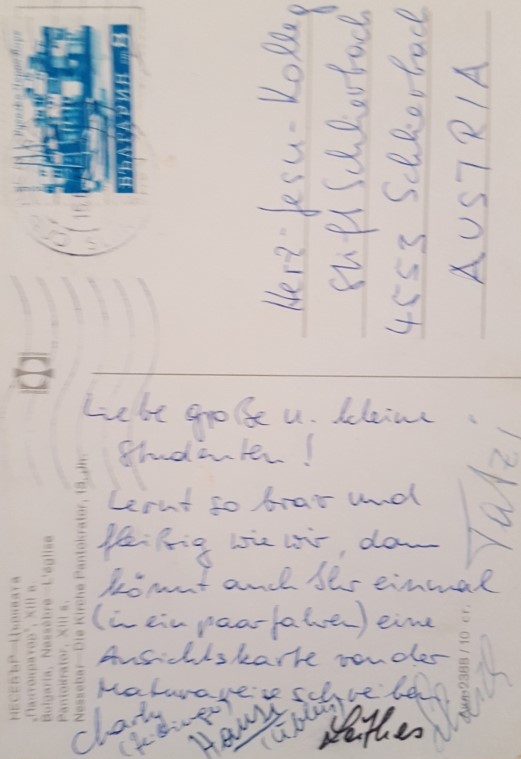 БЪЛГАРИЯ
Herz-Jesu-Kolleg
Stift Schlierbach
4553 Schlierbach
AUSTRIA
Liebe große u. kleine
Studenten!
Lernt so brav und
fleißig wie wir, dann
könnt auch Ihr einmal
(in ein paar Jahren) eine
Ansichtskarte von der
Maturareise schreiben
Charly
Hansi
Tatzi
НЕСЕБЪР – Църквата
„Пантократор“, XIII в.
Bulgaria, Nessebre – L'église
Pantokrator, XIII s.
Nessebar – Die Kirche Pantokrator, 13. Jh.